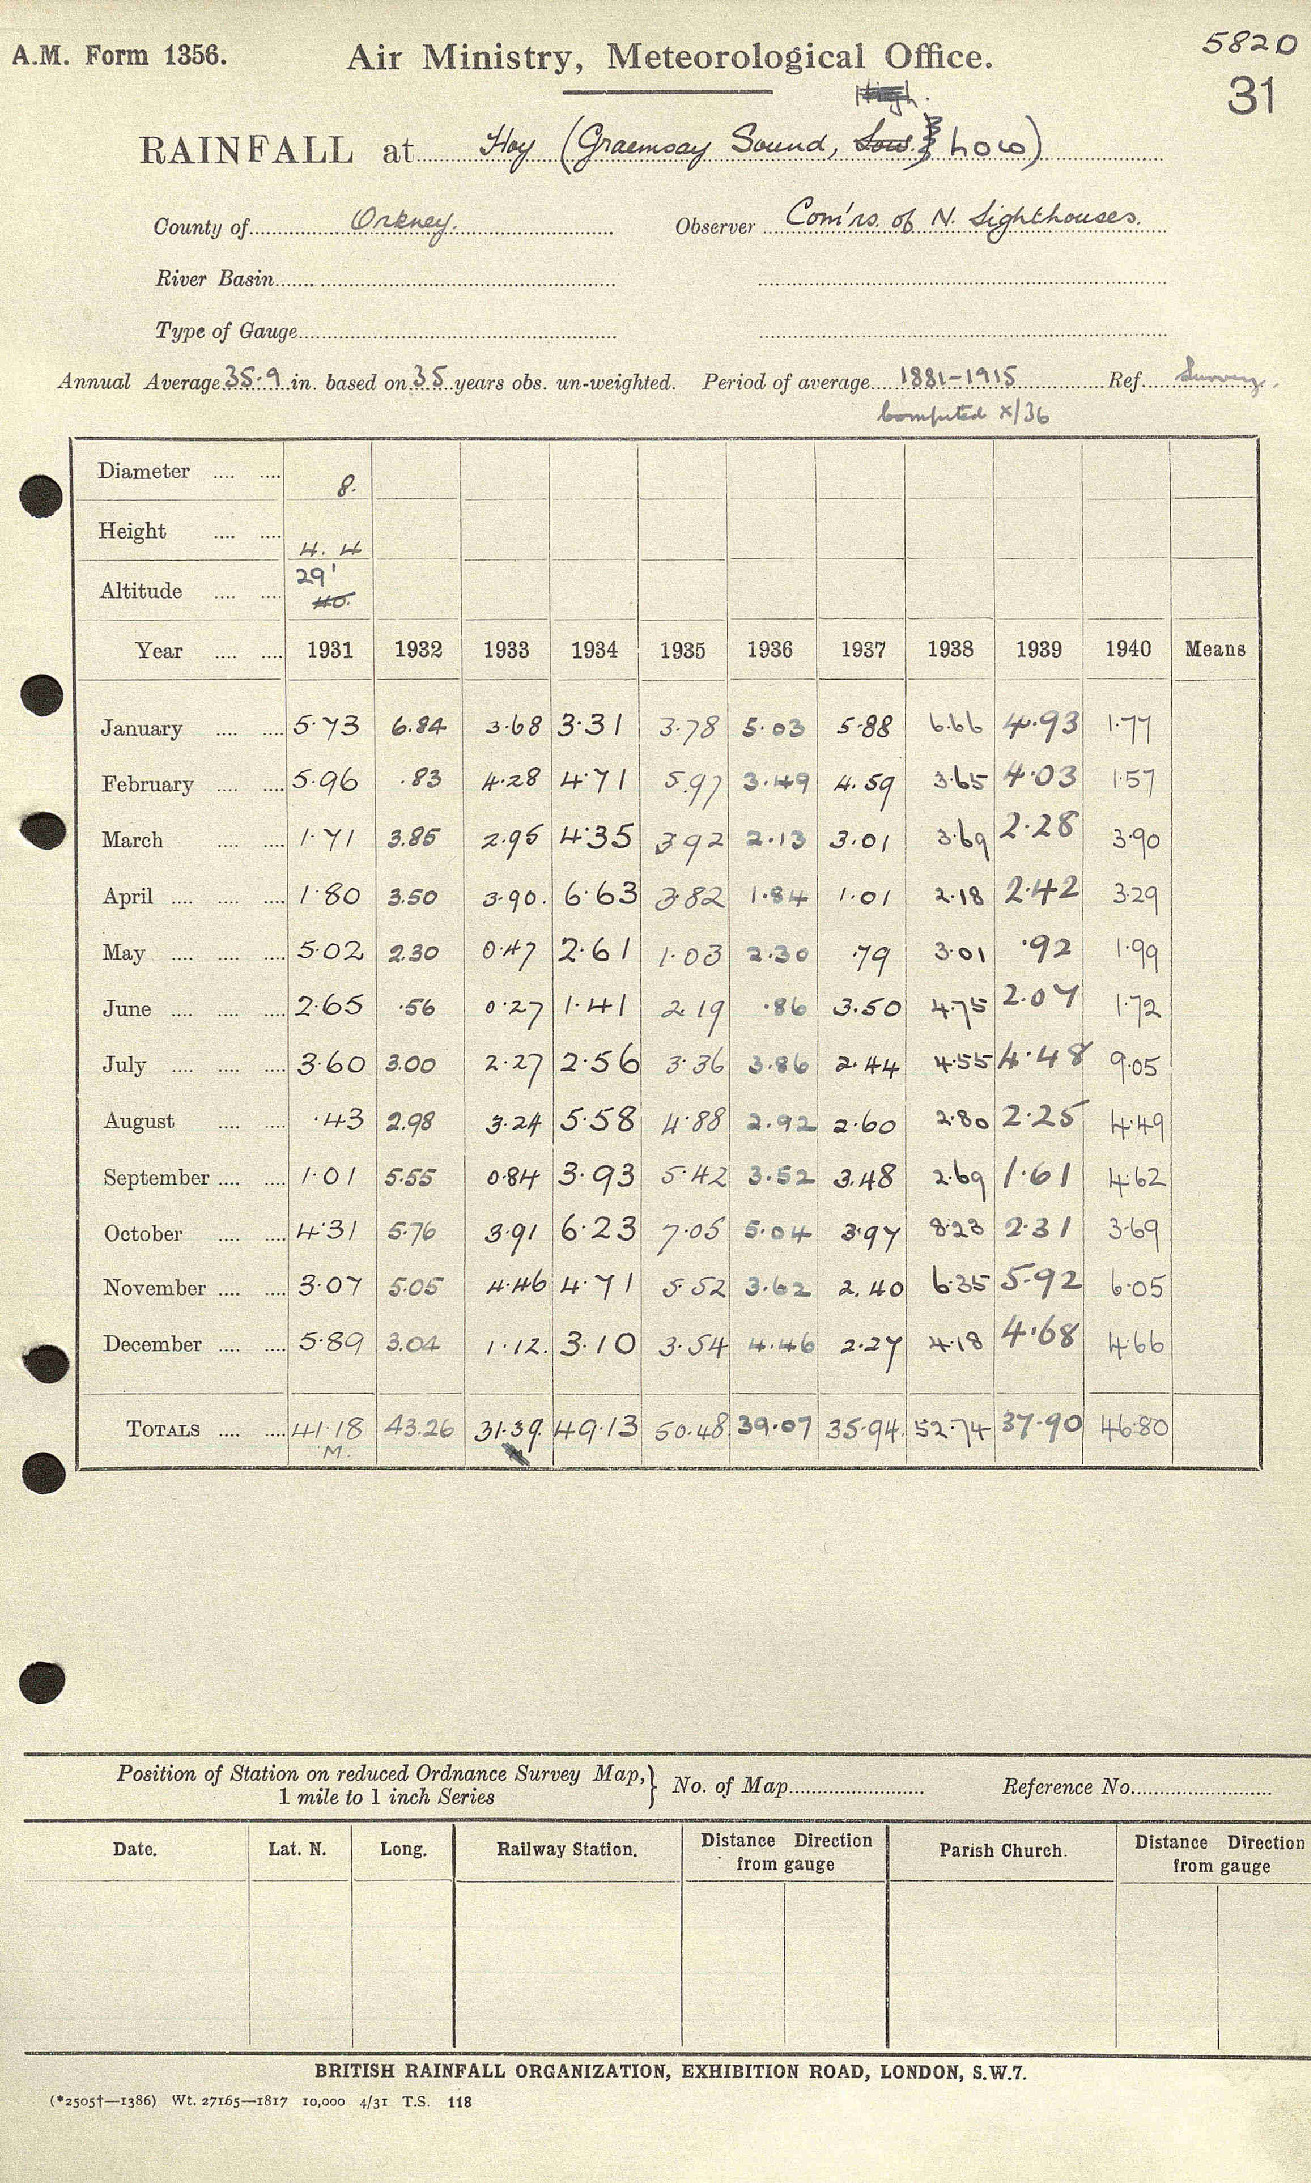 A.M. Form 1356.
Air Ministry, Meteorological Office.
5820
31
High.
RAINFALL at Hoy (Graemsay Sound, Low. Low)
County of Orkney.
Observer Com'rs. of N. Lighthouses.
River Basin
Type of Gauge
Annual Average 35.9 in. based on 35 years obs. un-weighted. Period of average 1881-1915 Ref. Survey.
Computed X/36
Diameter 8.
Height 4. 4
Altitude 29' 40.
Year 1931 1932 1933 1934 1935 1936 1937 1938 1939 1940 Means
January 5.73 6.84 3.68 3.31 3.78 5.03 5.88 6.66 4.93 1.77
February 5.96 .83 4.28 4.71 5.97 3.49 4.59 3.65 4.03 1.57
March 1.71 3.85 2.95 4.35 3.92 2.13 3.01 3.69 2.28 3.90
April 1.80 3.50 3.90. 6.63 3.82 1.84 1.01 2.18 2.42 3.29
May 5.02 2.30 0.47 2.61 1.03 2.30 .79 3.01 .92 1.99
June 2.65 .56 0.27 1.41 2.19 .86 3.50 4.75 2.07 1.72
July 3.60 3.00 2.27 2.56 3.36 3.86 2.44 4.55 4.48 9.05
August .43 2.98 3.24 5.58 4.88 2.92 2.60 2.80 2.25 4.49
September 1.01 5.55 0.84 3.93 5.42 3.52 3.48 2.69 1.61 4.62
October 4.31 5.76 3.91 6.23 7.05 5.04 3.97 8.23 2.31 3.69
November 3.07 5.05 4.46 4.71 5.52 3.62 2.40 6.35 5.92 6.05
December 5.89 3.04 1.12. 3.10 3.54 4.46 2.27 4.18 4.68 4.66
TOTALS 41.18 43.26 31.39. 49.13 50.48 39.07 35.94. 52.74 37.90 46.80
M.
Position of Station on reduced Ordnance Survey Map,
1 mile to 1 inch Series
No. of Map
Reference No.
Date. Lat. N. Long. Railway Station. Distance Direction from gauge Parish Church. Distance Direction from gauge
BRITISH RAINFALL ORGANIZATION, EXHIBITION ROAD, LONDON, S.W.7.
(*2505†—1386) Wt. 27165—1817 10,000 4/31 T.S. 118